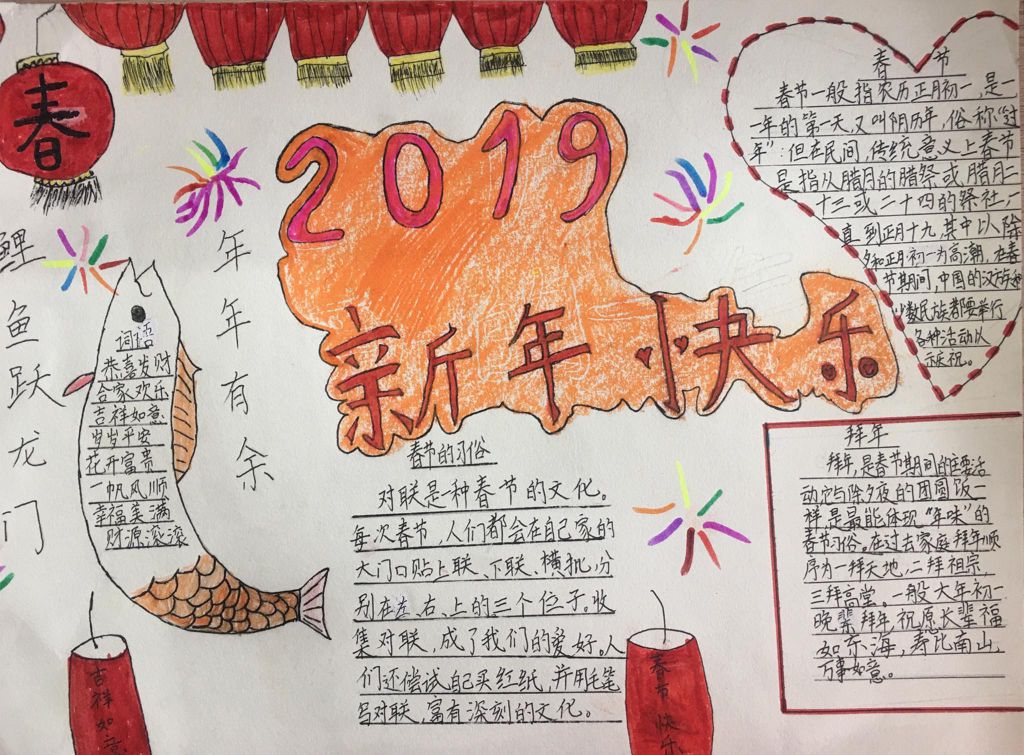 春
2019
新年快乐
鲤鱼跃龙门
年年有余
词语
恭喜发财
合家欢乐
吉祥如意
岁岁平安
花开富贵
一帆风顺
幸福美满
财源滚滚
春节
春节一般指农历正月初一,是
一年的第一天,又叫阴历年,俗称“过
年”:但在民间,传统意义上春节
是指从腊月的腊祭或腊月二
十三或二十四的祭社,一
直到正月十九,其中以除
夕和正月初一为高潮,在春
节期间,中国的汉族和
少数民族都要举行
各种活动以
示庆祝。
春节的习俗
对联是一种春节的文化。
每次春节,人们都会在自己家的
大门口贴上联、下联、横批,分
别在左、右、上的三个位子。收
集对联,成了我们的爱好。人
们还偿试自己买红纸,并用毛笔
写对联,富有深刻的文化。
拜年
拜年,是春节期间的主要活
动它与除夕夜的团圆饭一
样,是最能体现“年味”的
春节习俗。在过去家庭拜年顺
序为一拜天地,二拜祖宗
三拜高堂。一般大年初一
晚辈拜年,祝愿长辈福
如东海,寿比南山,
万事如意。
吉祥如意
春节快乐